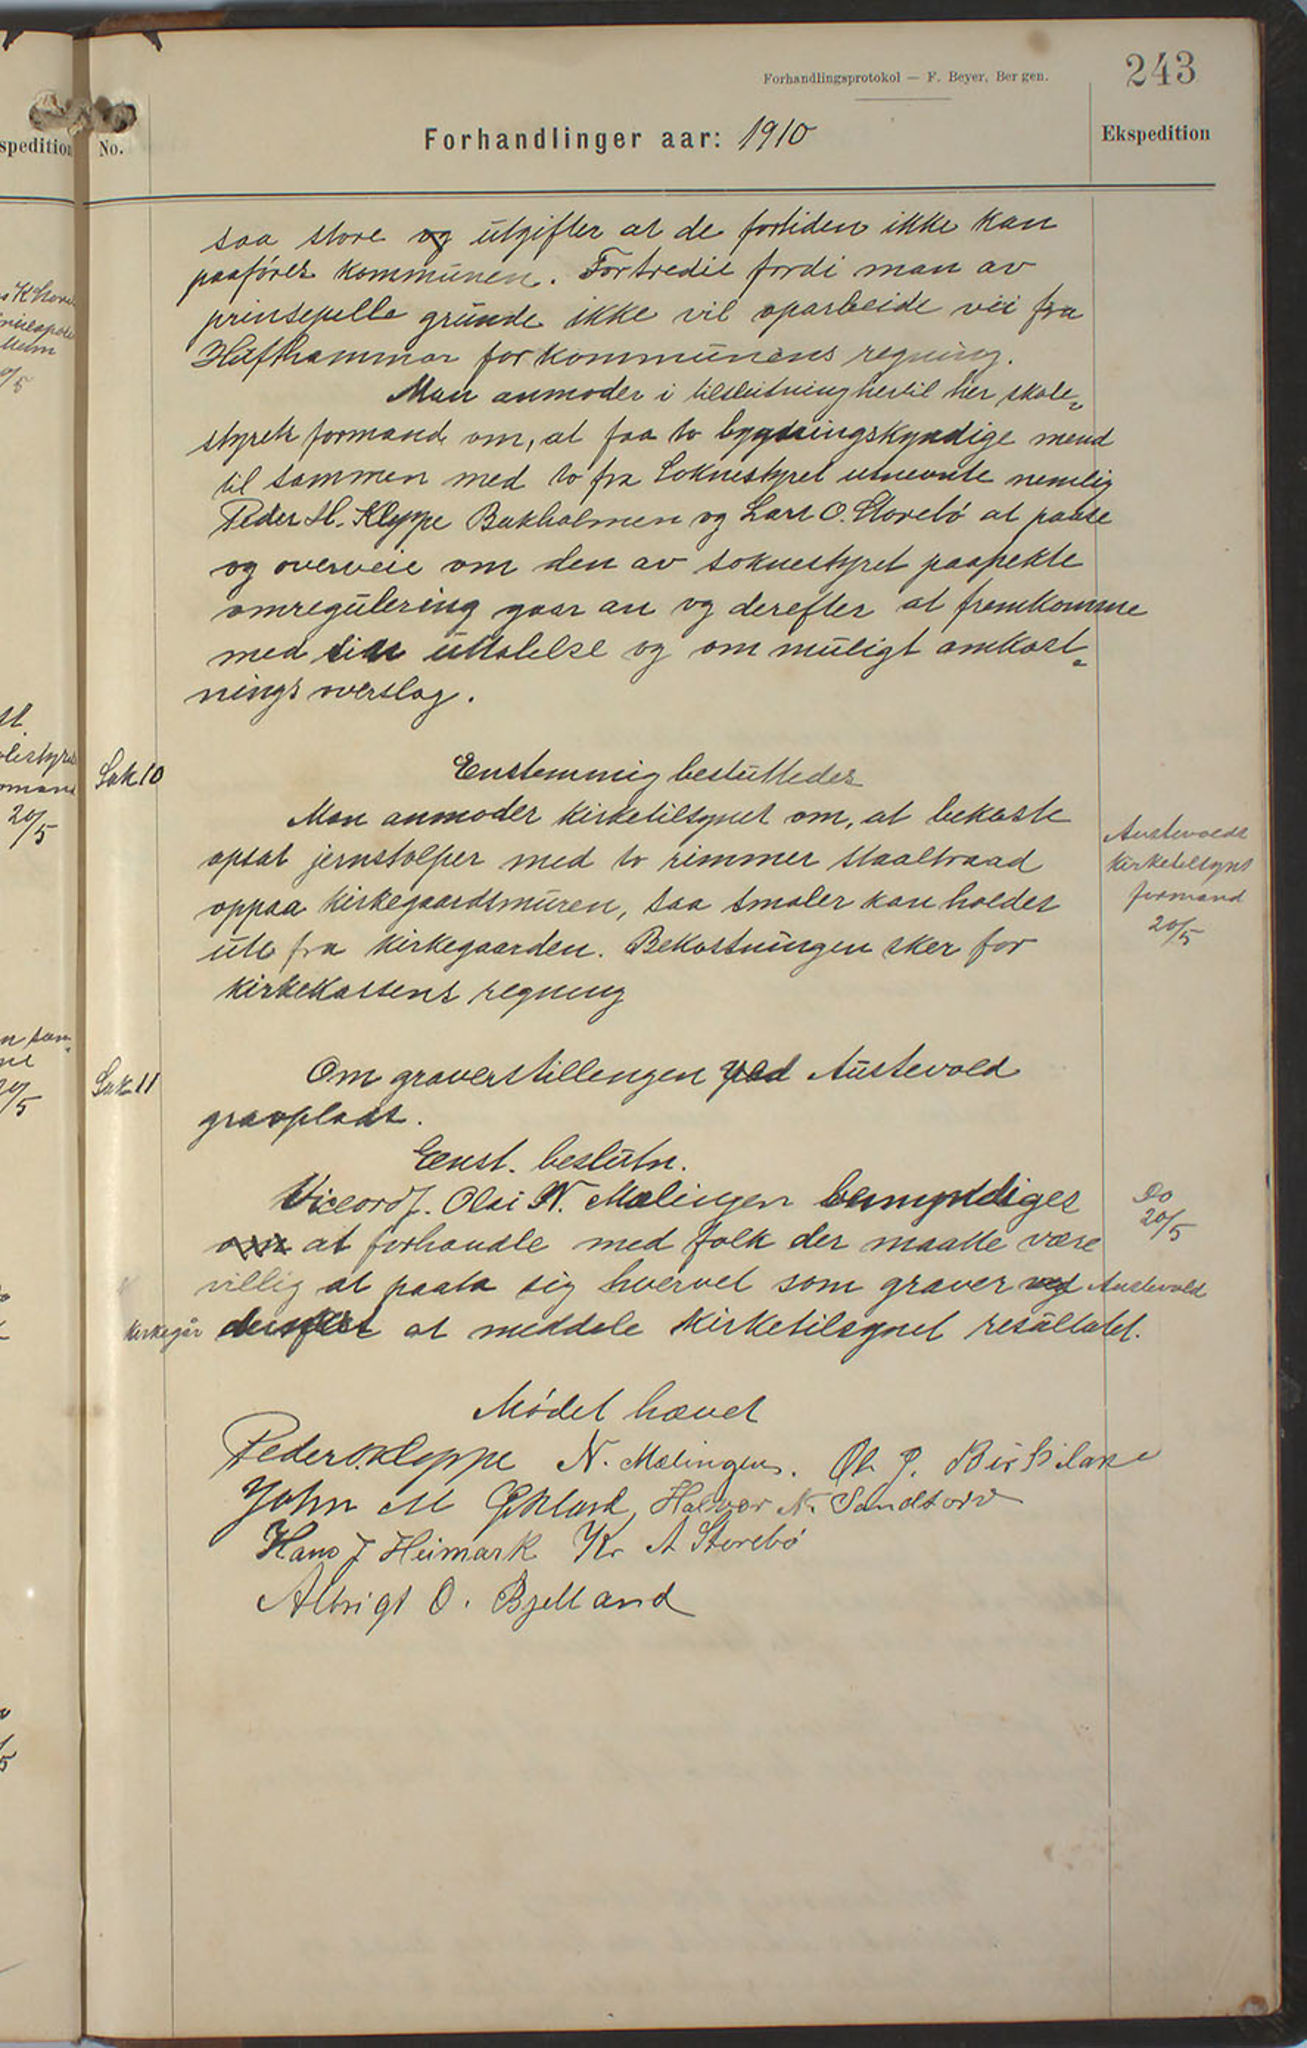 Forhandlingsprotokol — F. Beyer, Bergen.
243
Forhandlinger aar: 1910
Ekspedition
spedition
No.
saa store og utgifter at de fortiden ikke kan
paaføres kommunen. Fortredie fordi man av
prinsepelle grunde ikke vil oparbeide vei fra
Hufthammar for kommunens regning.
Man anmoder i tilslutning hertil her skole-
styrets formand om, at faa to bygdningskyndige mend
til sammen med to fra Soknestyret utnevnte nemlig
Peder H. Kleppe Bakholmen og Lars O. Storebø at paase
og overveie om den av soknestyret paapekte
omregulering gaar an og derefter at fremkomme
med sin uttalelse og om muligt omkost-
nings overslag.
Sak 10
Enstemmig besluttedes
Man anmoder kirketilsynet om, at bekoste
opsat jernstolper med to rimmer staaltraad
oppaa kirkegaardsmuren, saa smaler kan holdes
ute fra kirkegaarden. Bekostningen sker for
kirkekassens regning
Austevolds
kirketilsyns
formand
20/5
Sak 11
Om graverstillengen ved Austevold
gravplads.
Enst. beslutn.
Viceordf. Olai N. Mølingen bemyndiges
om at forhandle med folk der maatte være
villig at paata sig hvervet som graver ved Austevold
kirkegår at meddele kirketilsynet resultatet.
Do
20/5
Mødet hævet
Peder O. Kleppe N. Mølingen. Ole P. Birkiland
John M Eklund Halvor N. Sandtorv
Hans J Heimark Kr. A Storebø
Albrigt O. Bjelland